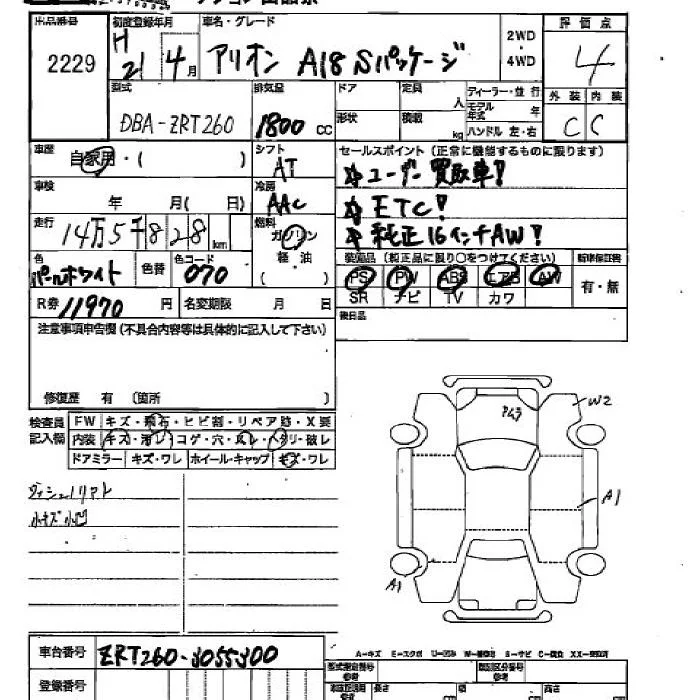 出品番号 初度登録年月 車名・グレード 2WD・4WD 評価点
2229 H21 4月 アリオン A18 Sパッケージ 4
型式 排気量 ドア 定員 人 ディーラー・並行 外装 内装
DBA-ZRT260 1800 cc 形状 積載 kg モデル年式 年 ハンドル 左・右 C C
車歴 自家用・( ) シフト AT セールスポイント(正常に機能するものに限ります)
車検 年 月( 日) 冷房 AAC ☆ユーザー買取車!
☆ETC!
走行 14万5千828km 燃料 ガソリン 軽油 ( ) ☆純正16インチAW!
色 パールホワイト 色替 色コード 070 装備品(純正品に限り○をつけてください) 新車保証書
PS PW ABS エアB AW 有・無
SR ナビ TV カワ
R券 11970円 名変期限 月 日 後日品
注意事項申告欄(不具合内容等は具体的に記入して下さい)
修復歴 有 (箇所 )
検査員記入欄 FW キズ・飛石・ヒビ割・リペア跡・X要
内装 キズ・汚レ・コゲ・穴・ヌレ・ヘタリ・破レ
ドアミラー キズ・ワレ ホイール・キャップ キズ・ワレ
小キズ小凹
W2
A1
A1
車台番号 ZRT260-3055300
A-キズ
登録番号 型式指定番号 参考 類別区分番号 参考
長さ 幅 高さ